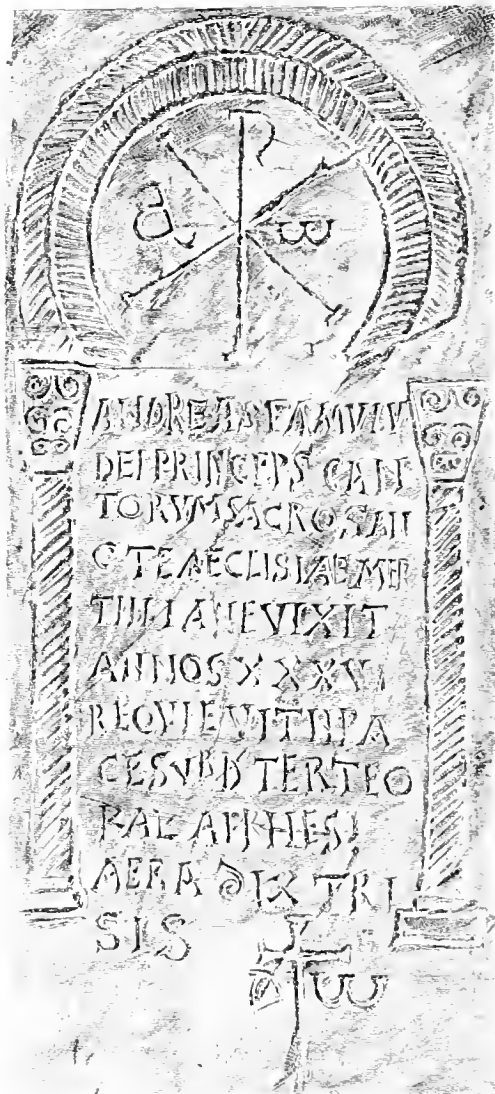 ANDREAS FAMVLV
DEI PRINCEPS CAN
TORVM SACROSAN
CTE AECLISIAE MER
TILLIANE VIXIT
ANNOS XXXVI
REQVIEVIT IN PA
CE SVB D TERTEO
KAL APRILES
AERA DLX TRI
SIS